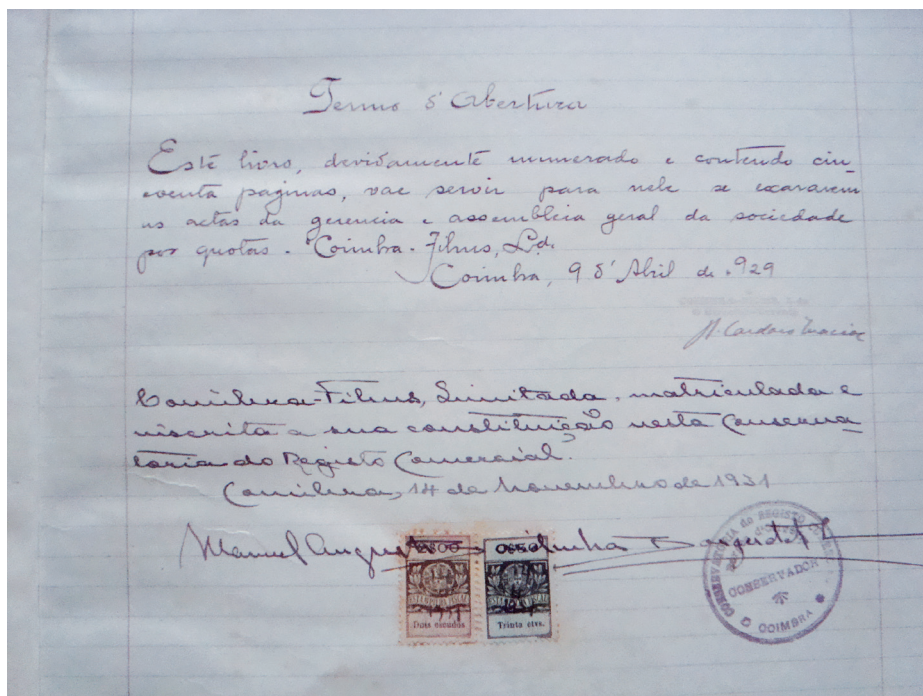 Termo d'Abertura
Este livro, devidamente numerado e contendo cin-
coenta paginas, vae servir para nele se exararem
as actas da gerencia e assembleia geral da sociedade
por quotas. "Coimbra-Films, Ld.
Coimbra, 9 d'Abril de 929
Coimbra-Films, Limitada, matriculada e
inscrita a sua constituição nesta Conserva-
toria do Registo Comercial.
Coimbra, 14 de Novembro de 1931
Manuel
CONSERVATORIA do REGISTO
CONSERVADOR
COIMBRA
Dois escudos
Trinta ctvs.